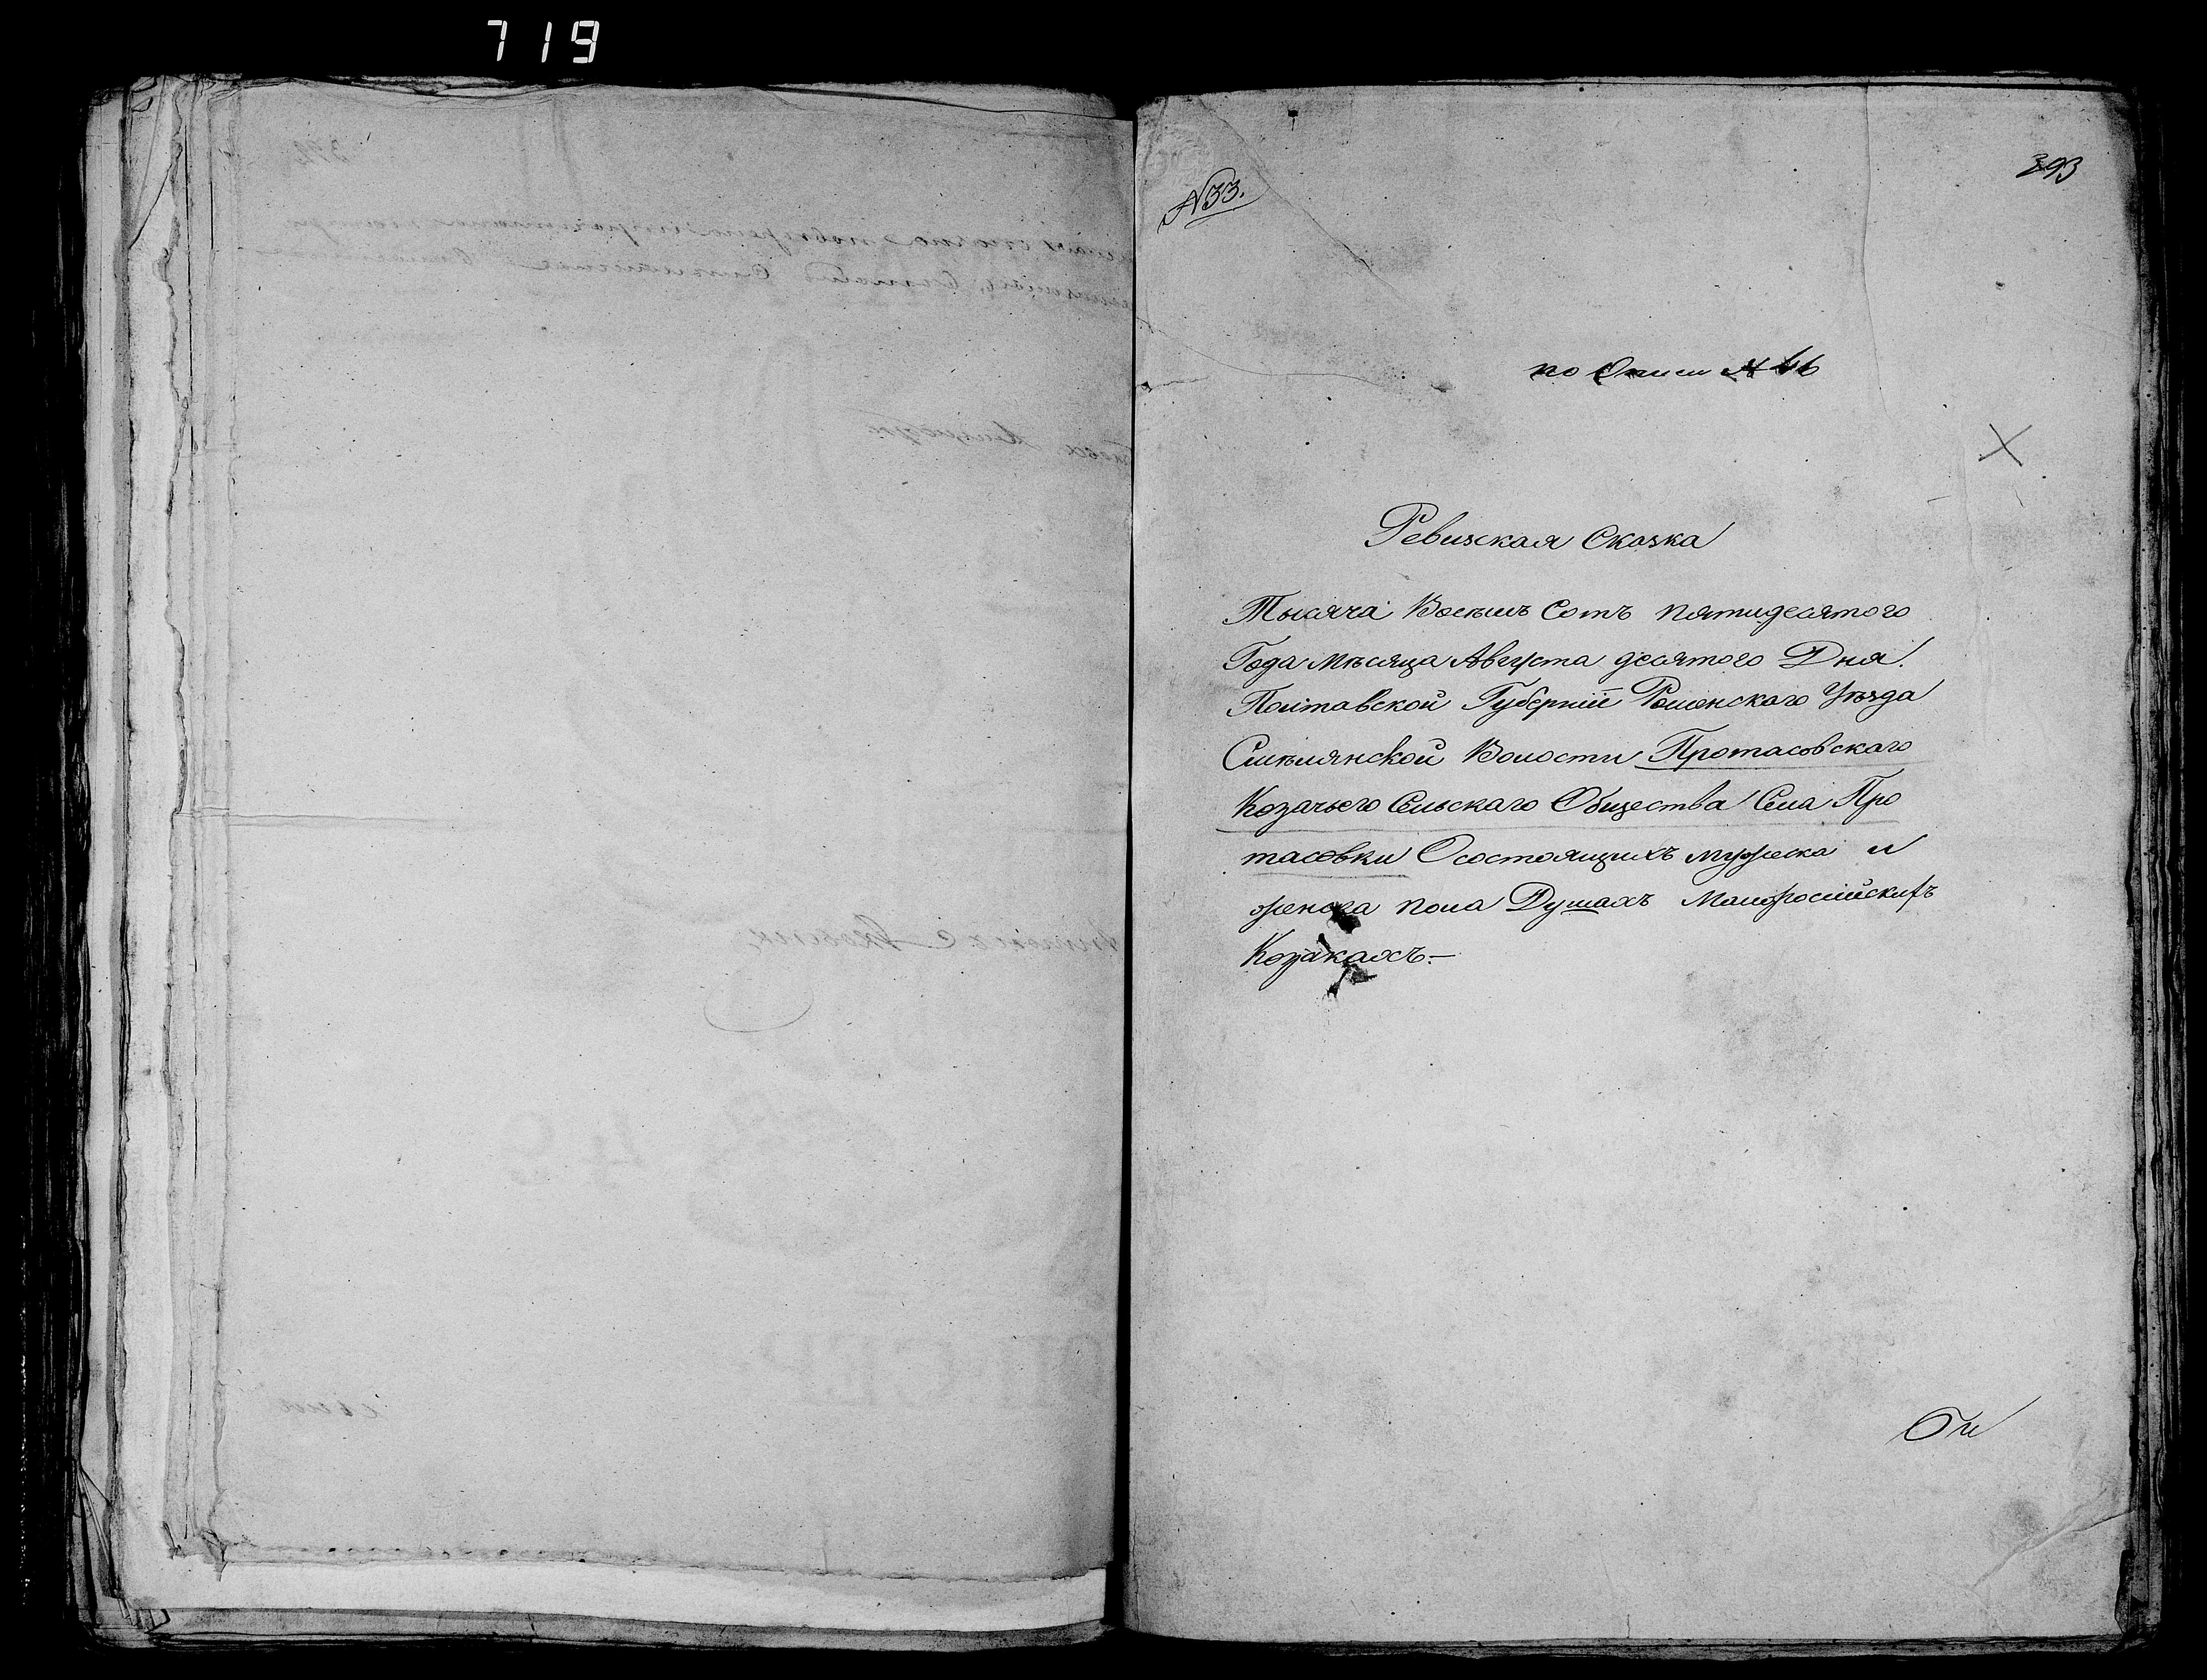 719
393
N33.
по Описи № 46
Ревизская Сказка
Тысяча Восемь Сотъ пятидесятого
Года Мѣсяца Августа десятого Дня.
Полтавской Губерніи Роменского Уѣзда
Смѣлянской Волости Протасовскаго
Козачьего Сельскаго Общества Села Про
тасовки О состоящихъ мужеска и
женска пола Душахъ Малоросійскихъ
Козакахъ.—